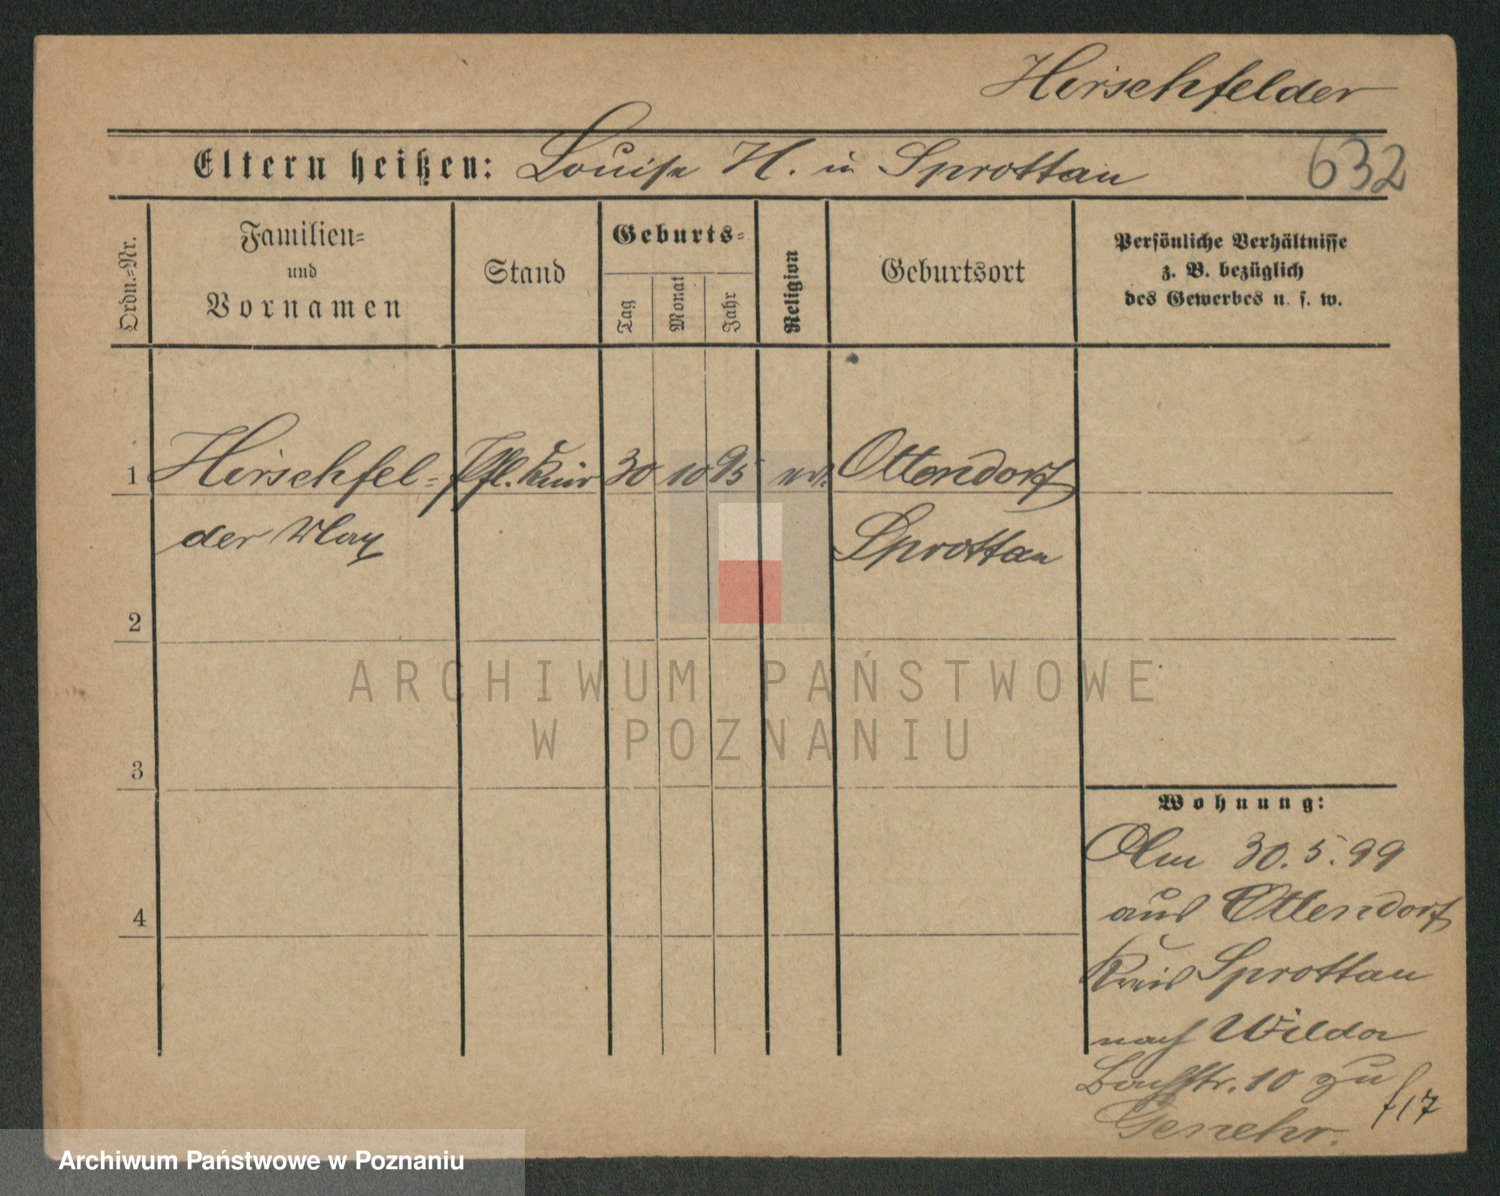 Hirschfelder
Eltern heißen: Louise H. in Sprottau
632
Ordn.-Nr.
Familien-
und
Vornamen
Stand
Geburts-
Tag
Monat
Jahr
Religion
Geburtsort
Persönliche Verhältnisse
z. B. bezüglich
des Gewerbes u. s. w.
1 Hirschfel- Pfl. Kind 30 10 95 ev. Ottendorf
der Max Sprottau
2
3
4
Wohnung:
Am 30.5.99
aus Ottendorf
Kreis Sprottau
nach Wilda
Bachstr. 10 zu
f/17
ARCHIWUM PAŃSTWOWE
W POZNANIU
Archiwum Państwowe w Poznaniu